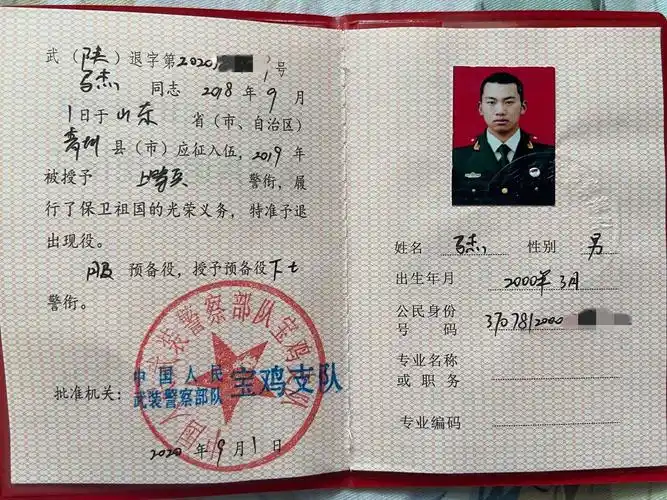 武（陕）退字第2020 1号
马杰 同志 2018 年 9 月
1 日于 山东 省（市、自治区）
青州 县（市）应征入伍，2019 年
被授予 上等兵 警衔，履
行了保卫祖国的光荣义务，特准予退
出现役。
服 预备役，授予预备役 下士
警衔。
批准机关：
中国人民
武装警察部队 宝鸡支队
2020 年 9 月 1 日
姓名 马杰 性别 男
出生年月 2000年3月
公民身份
号码 3707812000
专业名称
或职务
专业编码